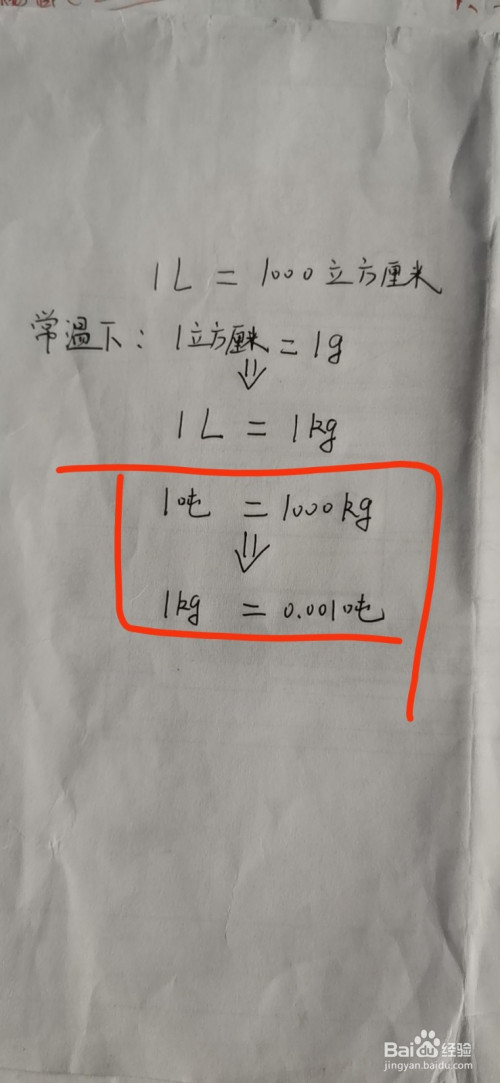 1L = 1000立方厘米
常温下: 1立方厘米 = 1g
⇓
1L = 1kg
1吨 = 1000kg
⇓
1kg = 0.001吨
Bai du 经验
jingyan.baidu.com